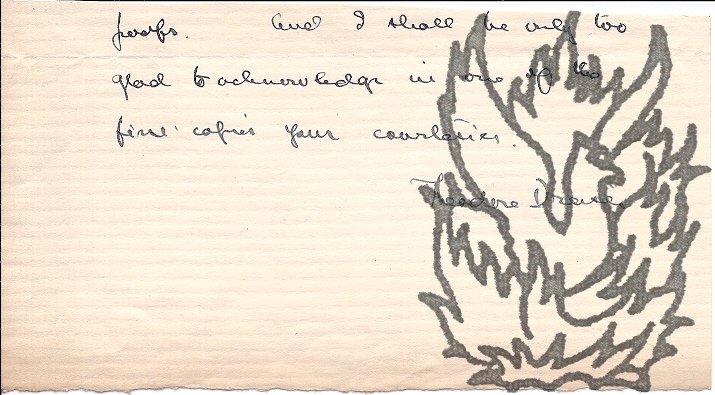 proofs. And I shall be only too
glad to acknowledge in one of the
first copies your courtesies.
Theodore Dreiser